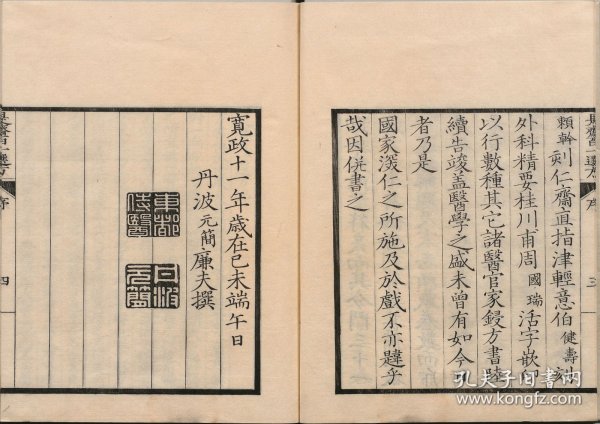 賴幹刻仁齋直指津輕意伯健壽刻
外科精要桂川甫周國瑞活字嵌印
以行數種其它諸醫官家鋟方書陸
續告竣蓋醫學之盛未曾有如今
者乃是
國家深仁之所施及於戲不亦韙乎
哉因併書之
三
寬政十一年歲在己未端午日
丹波元簡廉夫撰
東都侍醫
丹波元簡
序
四
孔夫子旧书网
www.kongfz.com